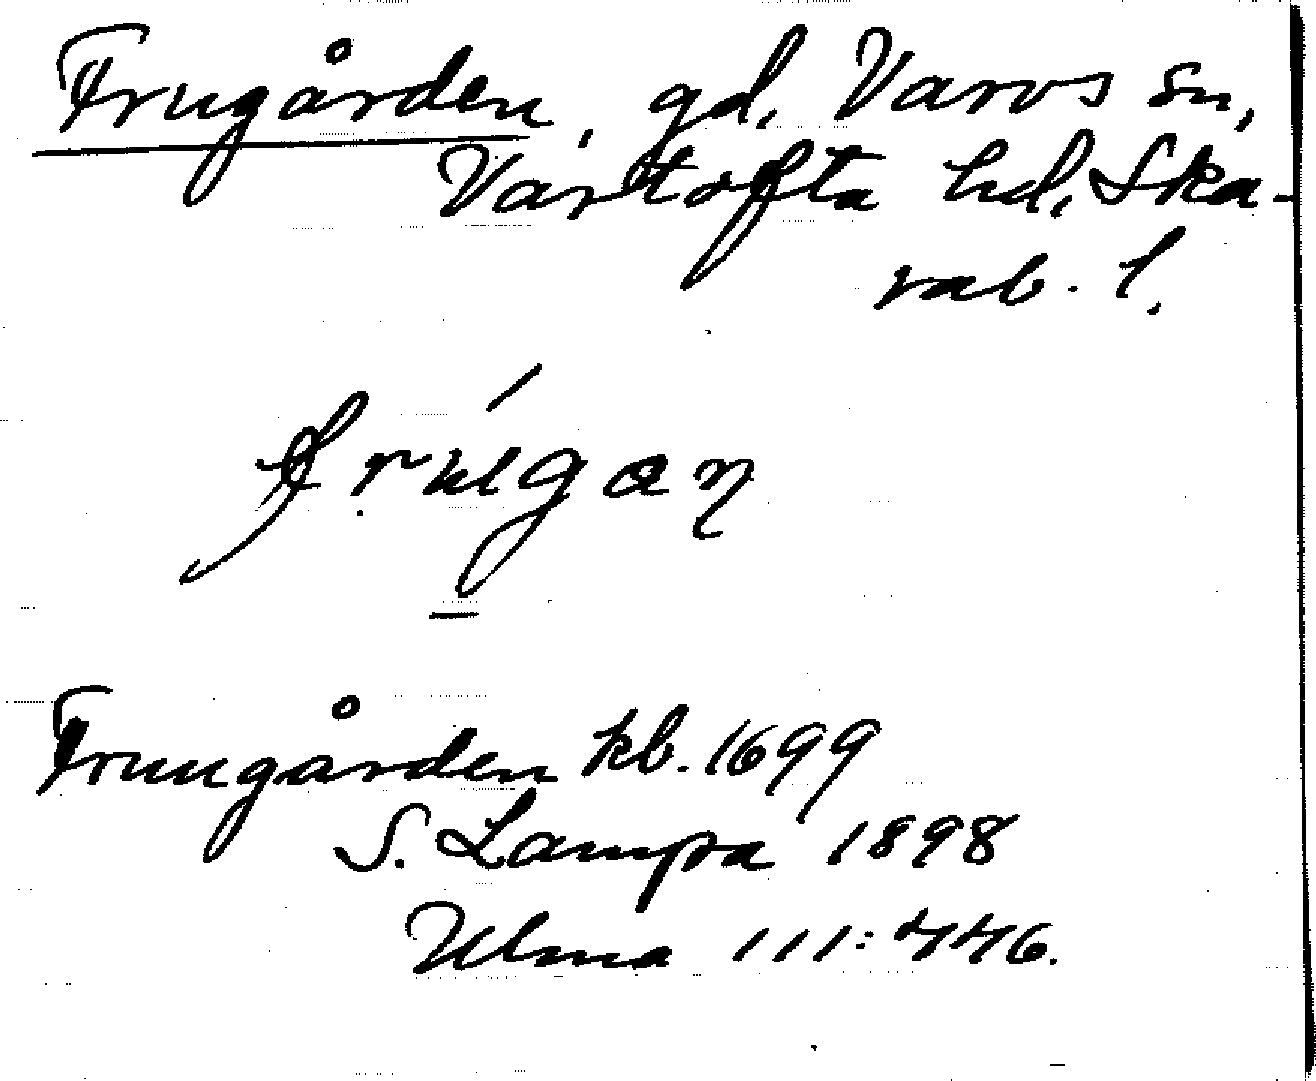 Frugården, gd, Varvs sn,
Vartofta hd, Ska-
rab. l.
frugan
Fruugården kb. 1699
S. Lampa 1898
Ulma 111:446.